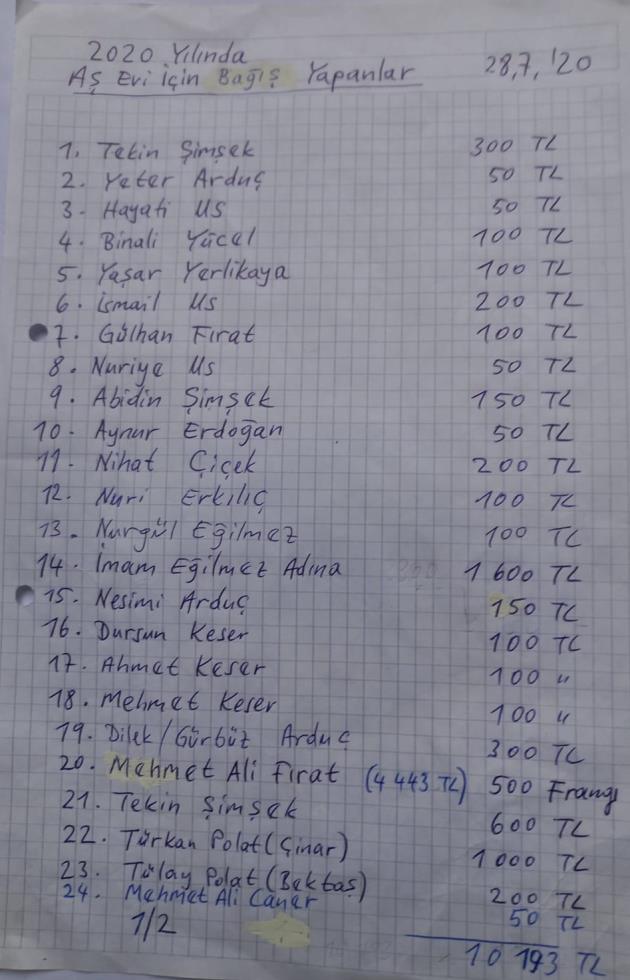 2020 Yılında
Aş Evi için Bağış Yapanlar 28,7,'20
1. Tekin Şimşek 300 TL
2. Yeter Arduç 50 TL
3. Hayati Us 50 TL
4. Binali Yücel 100 TL
5. Yaşar Yerlikaya 100 TL
6. İsmail Us 200 TL
7. Gülhan Fırat 100 TL
8. Nuriye Us 50 TL
9. Abidin Şimşek 150 TL
10. Aynur Erdoğan 50 TL
11. Nihat Çiçek 200 TL
12. Nuri Erkılıç 100 TL
13. Nurgül Eğilmez 100 TL
14. İmam Eğilmez Adına 1 600 TL
15. Nesimi Arduç 150 TL
16. Dursun Keser 100 TL
17. Ahmet Keser 100 "
18. Mehmet Keser 100 "
19. Dilek/Gürbüz Arduc 300 TL
20. Mehmet Ali Fırat (4 443 TL) 500 Frang
21. Tekin Şimşek 600 TL
22. Türkan Polat (Çinar) 1000 TL
23. Tülay Polat (Bektaş) 200 TL
24. Mehmet Ali Caner 50 TL
1/2 10 193 TL